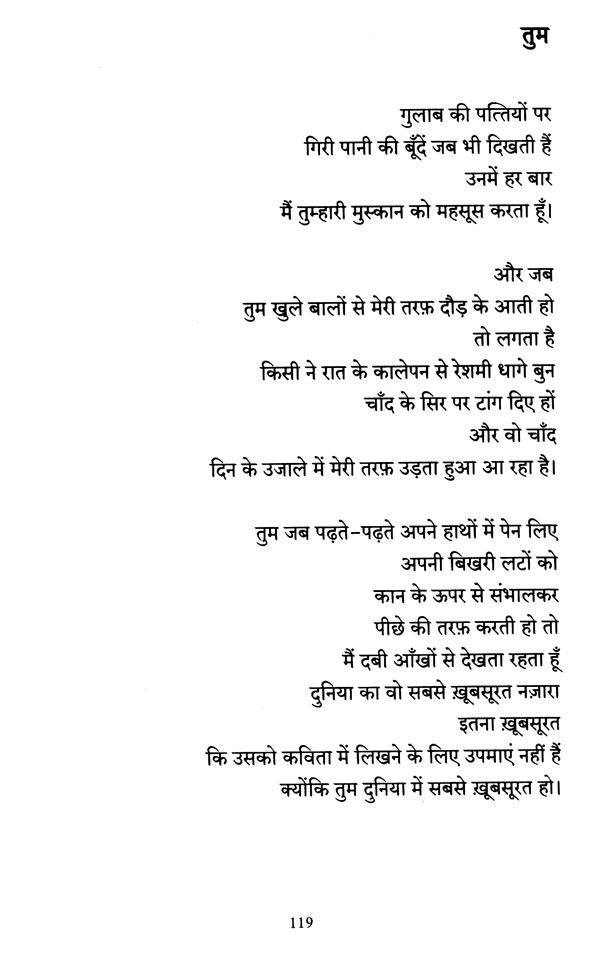 तुम
गुलाब की पत्तियों पर
गिरी पानी की बूँदें जब भी दिखती हैं
उनमें हर बार
मैं तुम्हारी मुस्कान को महसूस करता हूँ।
और जब
तुम खुले बालों से मेरी तरफ़ दौड़ के आती हो
तो लगता है
किसी ने रात के कालेपन से रेशमी धागे बुन
चाँद के सिर पर टांग दिए हों
और वो चाँद
दिन के उजाले में मेरी तरफ़ उड़ता हुआ आ रहा है।
तुम जब पढ़ते-पढ़ते अपने हाथों में पेन लिए
अपनी बिखरी लटों को
कान के ऊपर से संभालकर
पीछे की तरफ़ करती हो तो
मैं दबी आँखों से देखता रहता हूँ
दुनिया का वो सबसे ख़ूबसूरत नज़ारा
इतना ख़ूबसूरत
कि उसको कविता में लिखने के लिए उपमाएं नहीं हैं
क्योंकि तुम दुनिया में सबसे ख़ूबसूरत हो।
119